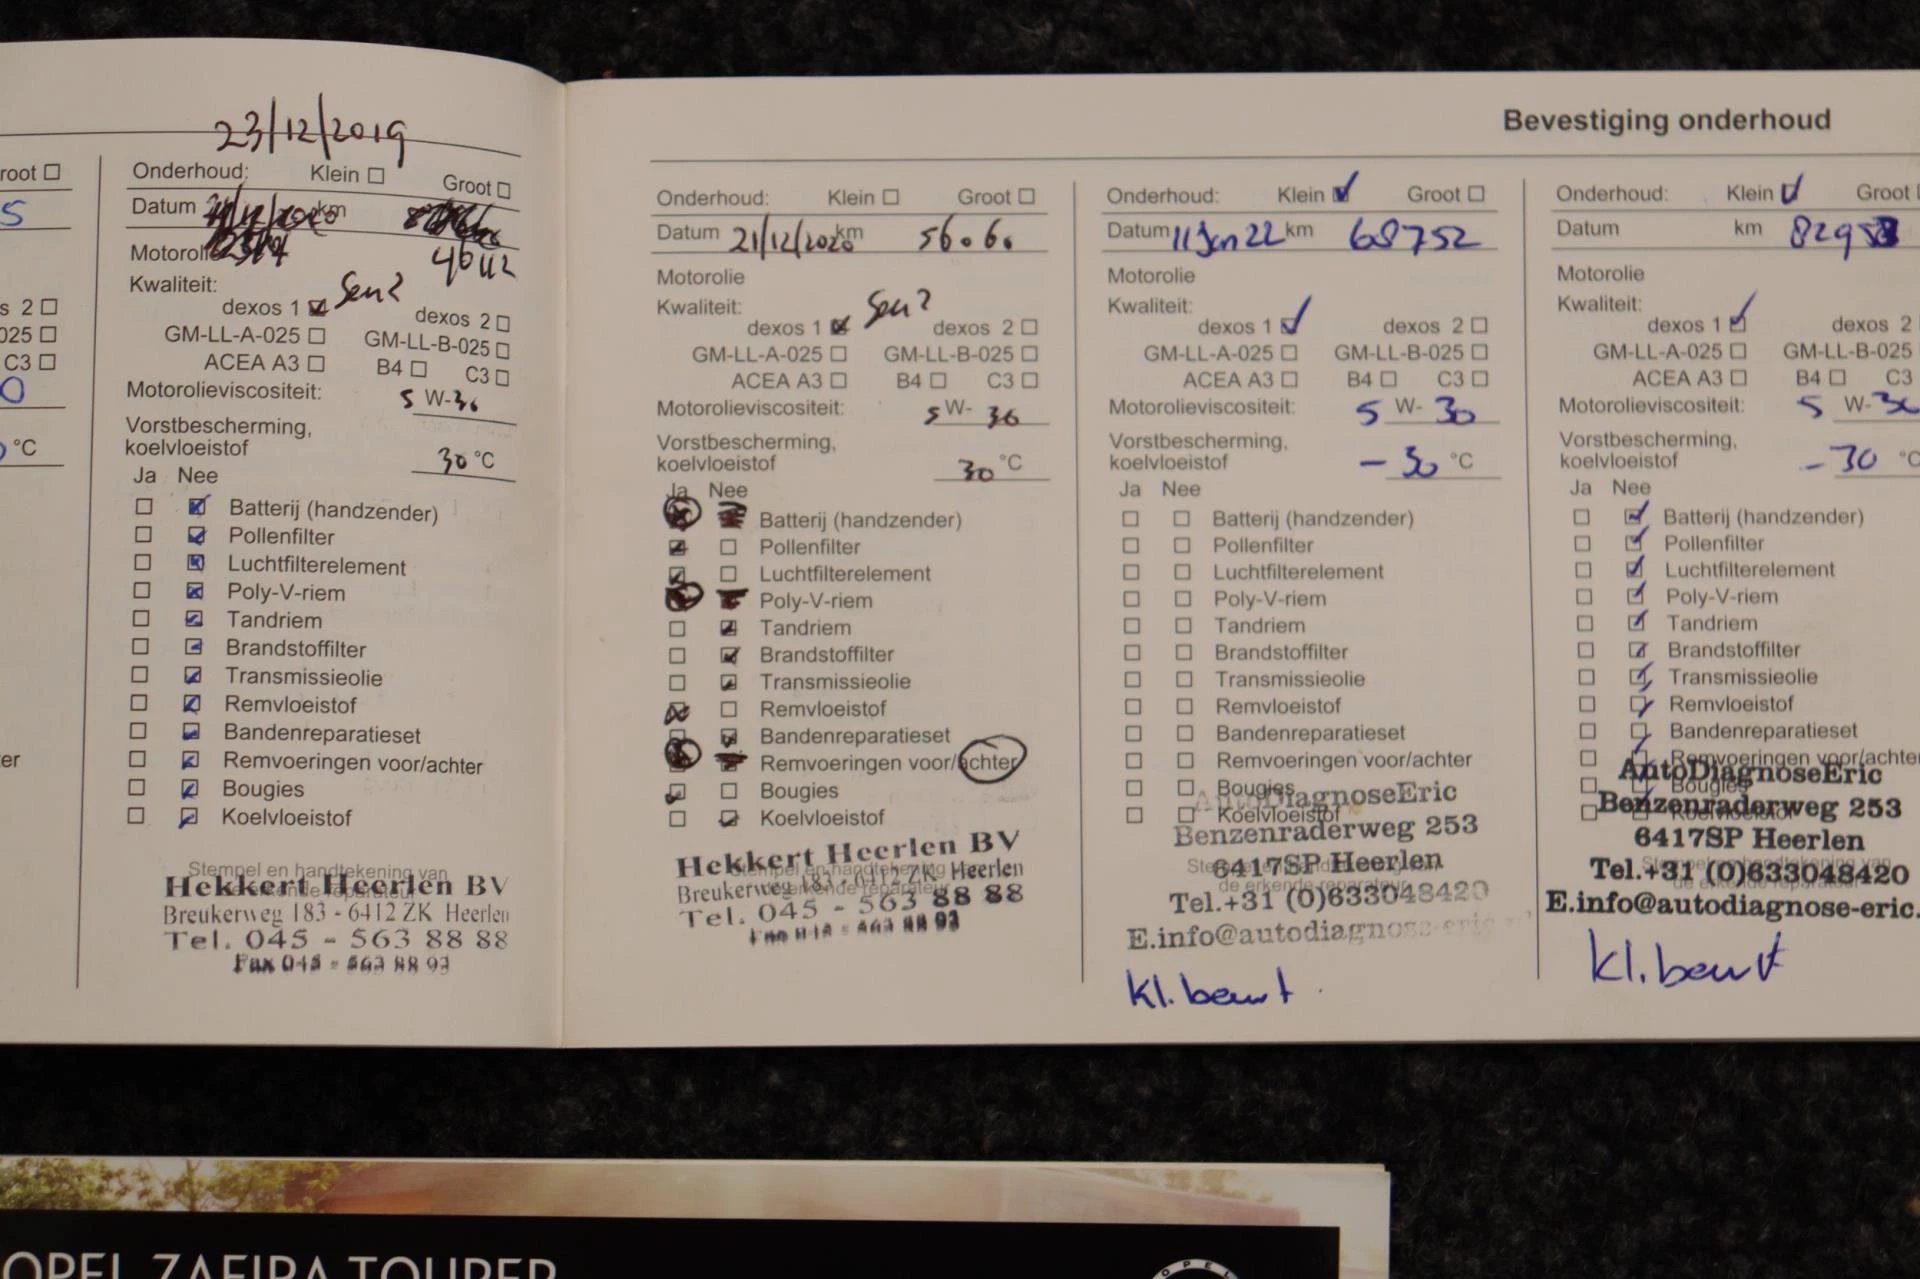 Bevestiging onderhoud
root
S
s 2
025
C3
0
°C
er
23/12/2019
Onderhoud: Klein Groot
Datum km
46112
Kwaliteit:
dexos 1 dexos 2
GM-LL-A-025 GM-LL-B-025
ACEA A3 B4 C3
Motorolieviscositeit: 5 W-30
Vorstbescherming,
koelvloeistof 30 °C
Ja Nee
Batterij (handzender)
Pollenfilter
Luchtfilterelement
Poly-V-riem
Tandriem
Brandstoffilter
Transmissieolie
Remvloeistof
Bandenreparatieset
Remvoeringen voor/achter
Bougies
Koelvloeistof
Stempel en handtekening van
Hekkert Heerlen BV
Breukerweg 183 - 6412 ZK Heerlen
Tel. 045 - 563 88 88
Fax 045 - 563 88 93
Onderhoud: Klein Groot
Datum 21/12/2020 km
Motorolie
Kwaliteit:
dexos 1 dexos 2
GM-LL-A-025 GM-LL-B-025
ACEA A3 B4 C3
Motorolieviscositeit: 5 W- 30
Vorstbescherming,
koelvloeistof 30 °C
Ja Nee
Batterij (handzender)
Pollenfilter
Luchtfilterelement
Poly-V-riem
Tandriem
Brandstoffilter
Transmissieolie
Remvloeistof
Bandenreparatieset
Remvoeringen voor/achter
Bougies
Koelvloeistof
Hekkert Heerlen BV
Breukerweg 183 - 6412 ZK Heerlen
Tel. 045 - 563 88 88
Fax 045 - 563 88 93
Onderhoud: Klein Groot
Datum 11 Jan 22 km 68752
Motorolie
Kwaliteit:
dexos 1 dexos 2
GM-LL-A-025 GM-LL-B-025
ACEA A3 B4 C3
Motorolieviscositeit: 5 W- 30
Vorstbescherming,
koelvloeistof - 30 °C
Ja Nee
Batterij (handzender)
Pollenfilter
Luchtfilterelement
Poly-V-riem
Tandriem
Brandstoffilter
Transmissieolie
Remvloeistof
Bandenreparatieset
Remvoeringen voor/achter
Bougies
Koelvloeistof
AutoDiagnoseEric
Benzenraderweg 253
6417SP Heerlen
Tel.+31 (0)633048420
E.info@autodiagnose-eric
kl. beurt
Onderhoud: Klein Groot
Datum km
Motorolie
Kwaliteit:
dexos 1 dexos 2
GM-LL-A-025 GM-LL-B-025
ACEA A3 B4 C3
Motorolieviscositeit: 5 W-30
Vorstbescherming,
koelvloeistof - 30 °C
Ja Nee
Batterij (handzender)
Pollenfilter
Luchtfilterelement
Poly-V-riem
Tandriem
Brandstoffilter
Transmissieolie
Remvloeistof
Bandenreparatieset
Remvoeringen voor/achter
Bougies
Koelvloeistof
AutoDiagnoseEric
Benzenraderweg 253
6417SP Heerlen
Tel.+31 (0)633048420
E.info@autodiagnose-eric.
kl. beurt
OPEL ZAFIRA TOURER
OPEL